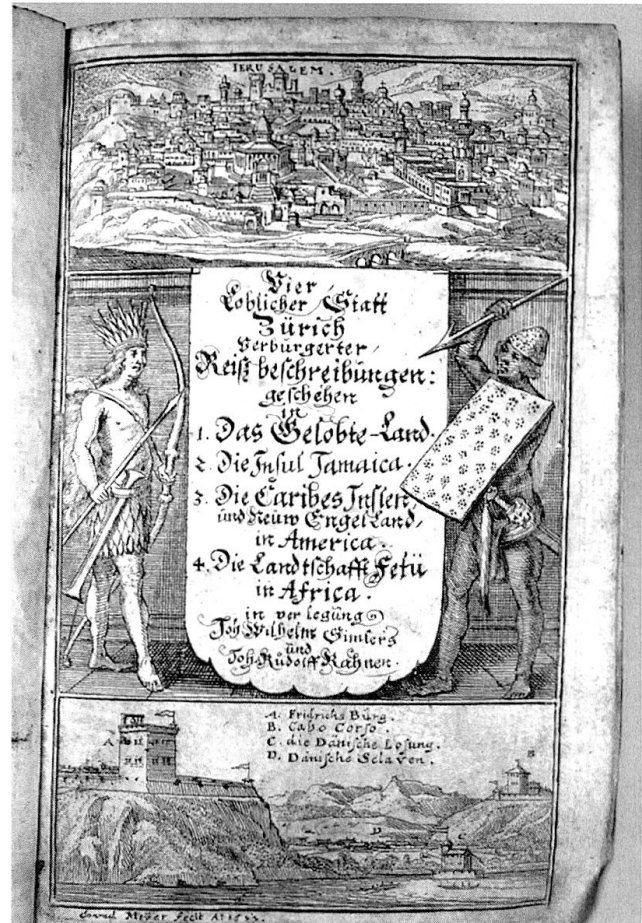 IERUSALEM.
Vier
Loblicher Statt
Zürich
Verburgerter
Reiß beschreibungen:
geschehen
in
1. Das Gelobte-Land.
2. Die Insul Jamaica.
3. Die Caribes Inslen,
und Neüw Engelland,
in America.
4. Die Landtschafft Fetü
in Africa.
in verlegung
Joh Wilhelm Simlers
und
Joh Rüdolff Rahnen.
A. Fridrichs Burg.
B. Cabo Corso.
C. die Dänische Losung.
D. Dänische Sclaven.
A
B
D
C
Conrad Meyer fecit A°